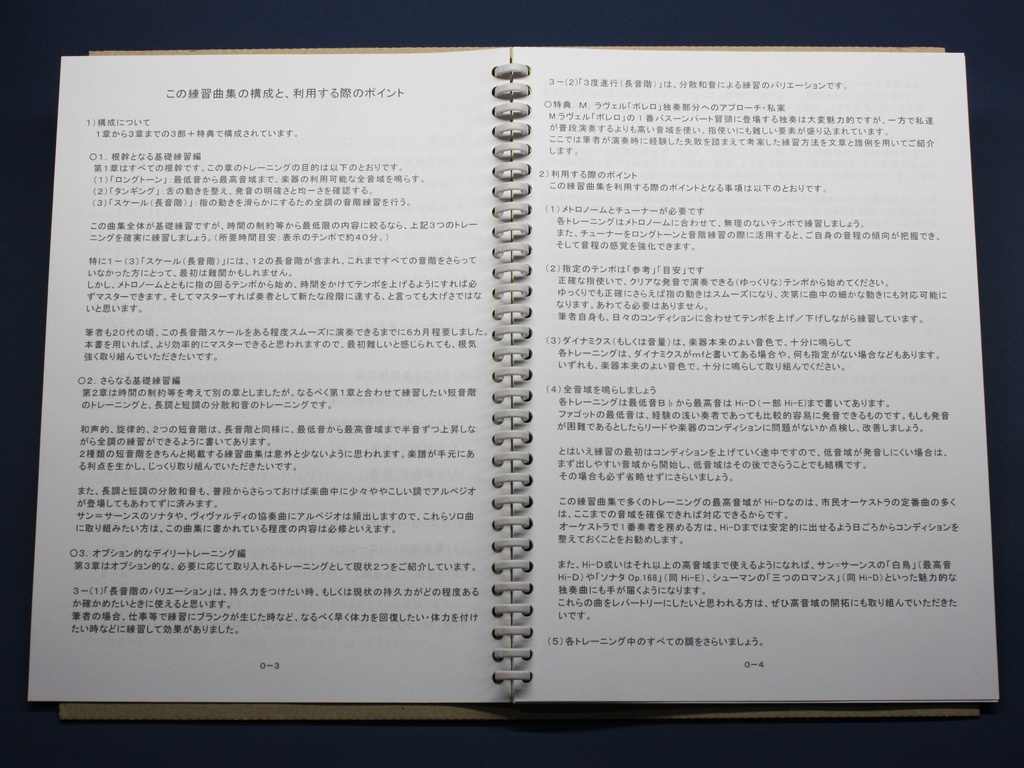 この練習曲集の構成と、利用する際のポイント
1）構成について
1章から3章までの3部＋特典で構成されています。
○1. 根幹となる基礎練習編
第1章はすべての根幹です。この章のトレーニングの目的は以下のとおりです。
（1）「ロングトーン」：最低音から最高音域まで、楽器の利用可能な全音域を鳴らす。
（2）「タンギング」：舌の動きを整え、発音の明確さと均一さを確認する。
（3）「スケール（長音階）」：指の動きを滑らかにするため全調の音階練習を行う。
この曲集全体が基礎練習ですが、時間の制約等から最低限の内容に絞るなら、上記3つのトレー
ニングを確実に練習しましょう。（所要時間目安：表示のテンポで約40分。）
特に1－（3）「スケール（長音階）」には、12の長音階が含まれ、これまですべての音階をさらって
いなかった方にとって、最初は難関かもしれません。
しかし、メトロノームとともに指の回るテンポから始め、時間をかけてテンポを上げるようにすれば必
ずマスターできます。そしてマスターすれば奏者として新たな段階に達する、と言っても大げさではな
いと思います。
筆者も20代の頃、この長音階スケールをある程度スムーズに演奏できるまでに6カ月程要しました。
本書を用いれば、より効率的にマスターできると思われますので、最初難しいと感じられても、根気
強く取り組んでいただきたいです。
○2. さらなる基礎練習編
第2章は時間の制約等を考えて別の章としましたが、なるべく第1章と合わせて練習したい短音階
のトレーニングと、長調と短調の分散和音のトレーニングです。
和声的、旋律的、2つの短音階は、長音階と同様に、最低音から最高音域まで半音ずつ上昇しな
がら全調の練習ができるように書いてあります。
2種類の短音階をきちんと掲載する練習曲集は意外と少ないように思われます。楽譜が手元にあ
る利点を生かし、じっくり取り組んでいただきたいです。
また、長調と短調の分散和音も、普段からさらっておけば楽曲中に少々ややこしい調でアルペジオ
が登場してもあわてずに済みます。
サン＝サーンスのソナタや、ヴィヴァルディの協奏曲にアルペジオは頻出しますので、これらソロ曲
に取り組みたい方は、この曲集に書かれている程度の内容は必修といえます。
○3. オプション的なデイリートレーニング編
第3章はオプション的な、必要に応じて取り入れるトレーニングとして現状2つをご紹介しています。
3－（1）「長音階のバリエーション」は、持久力をつけたい時、もしくは現状の持久力がどの程度ある
か確かめたいときに使えると思います。
筆者の場合、仕事等で練習にブランクが生じた時など、なるべく早く体力を回復したい・体力を付け
たい時などに練習して効果がありました。
0－3
3－（2）「3度進行（長音階）」は、分散和音による練習のバリエーションです。
○特典. M. ラヴェル「ボレロ」独奏部分へのアプローチ・私案
M.ラヴェル「ボレロ」の1番バスーンパート冒頭に登場する独奏は大変魅力的ですが、一方で私達
が普段演奏するよりも高い音域を使い、指使いにも難しい要素が盛り込まれています。
ここでは筆者が演奏時に経験した失敗を踏まえて考案した練習方法を文章と譜例を用いてご紹介
します。
2）利用する際のポイント
この練習曲集を利用する際のポイントとなる事項は以下のとおりです。
（1）メトロノームとチューナーが必要です
各トレーニングはメトロノームに合わせて、無理のないテンポで練習しましょう。
また、チューナーをロングトーンと音階練習の際に活用すると、ご自身の音程の傾向が把握でき、
そして音程の感覚を強化できます。
（2）指定のテンポは「参考」「目安」です
正確な指使いで、クリアな発音で演奏できる（ゆっくりな）テンポから始めてください。
ゆっくりでも正確にさらえば指の動きはスムーズになり、次第に曲中の細かな動きにも対応可能に
なります。あわてる必要はありません。
筆者自身も、日々のコンディションに合わせてテンポを上げ／下げしながら練習しています。
（3）ダイナミクス（もしくは音量）は、楽器本来のよい音色で、十分に鳴らして
各トレーニングは、ダイナミクスがmfと書いてある場合や、何も指定がない場合などもあります。
いずれも、楽器本来のよい音色で、十分に鳴らして取り組んでください。
（4）全音域を鳴らしましょう
各トレーニングは最低音B♭から最高音はHi-D（一部Hi-E）まで書いてあります。
ファゴットの最低音は、経験の浅い奏者であっても比較的容易に発音できるものです。もしも発音
が困難であるとしたらリードや楽器のコンディションに問題がないか点検し、改善しましょう。
とはいえ練習の最初はコンディションを上げていく途中ですので、低音域が発音しにくい場合は、
まず出しやすい音域から開始し、低音域はその後でさらうことでも結構です。
その場合も必ず省略せずにさらいましょう。
この練習曲集で多くのトレーニングの最高音域がHi-Dなのは、市民オーケストラの定番曲の多く
は、ここまでの音域を確保できれば対応できるからです。
オーケストラで1番奏者を務める方は、Hi-Dまでは安定的に出せるよう日ごろからコンディションを
整えておくことをお勧めします。
また、Hi-D或いはそれ以上の高音域まで使えるようになれば、サン=サーンスの「白鳥」（最高音
Hi-D）や「ソナタ Op.168」（同 Hi-E）、シューマンの「三つのロマンス」（同 Hi-D）といった魅力的な
独奏曲にも手が届くようになります。
これらの曲をレパートリーにしたいと思われる方は、ぜひ高音域の開拓にも取り組んでいただきた
いです。
（5）各トレーニング中のすべての調をさらいましょう。
0－4